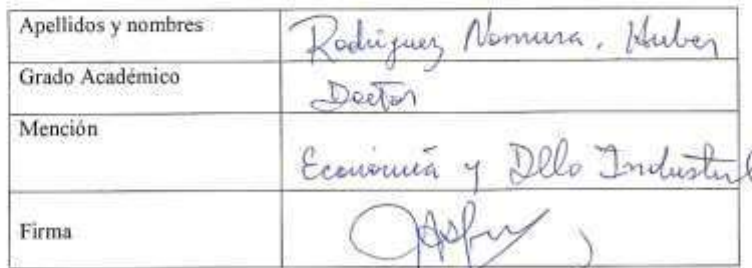 Apellidos y nombres
Rodriguez Nomura, Huber
Grado Académico
Doctor
Mención
Economía y Dllo Industrial
Firma